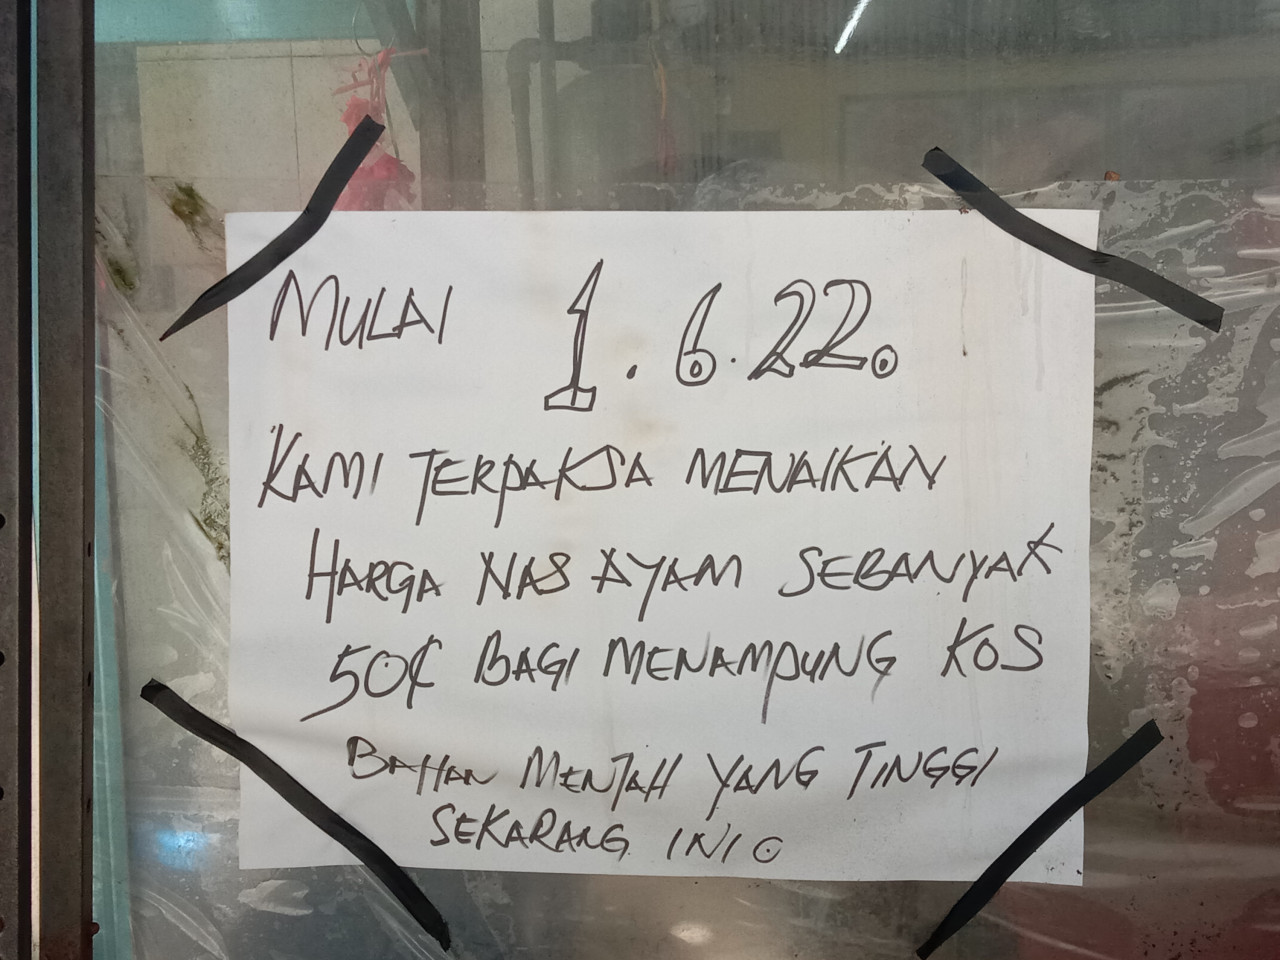 MULAI 1.6.22.
KAMI TERPAKSA MENAIKAN
HARGA NAS AYAM SEBANYAK
50¢ BAGI MENAMPUNG KOS
BAHAN MENTAH YANG TINGGI
SEKARANG INI.